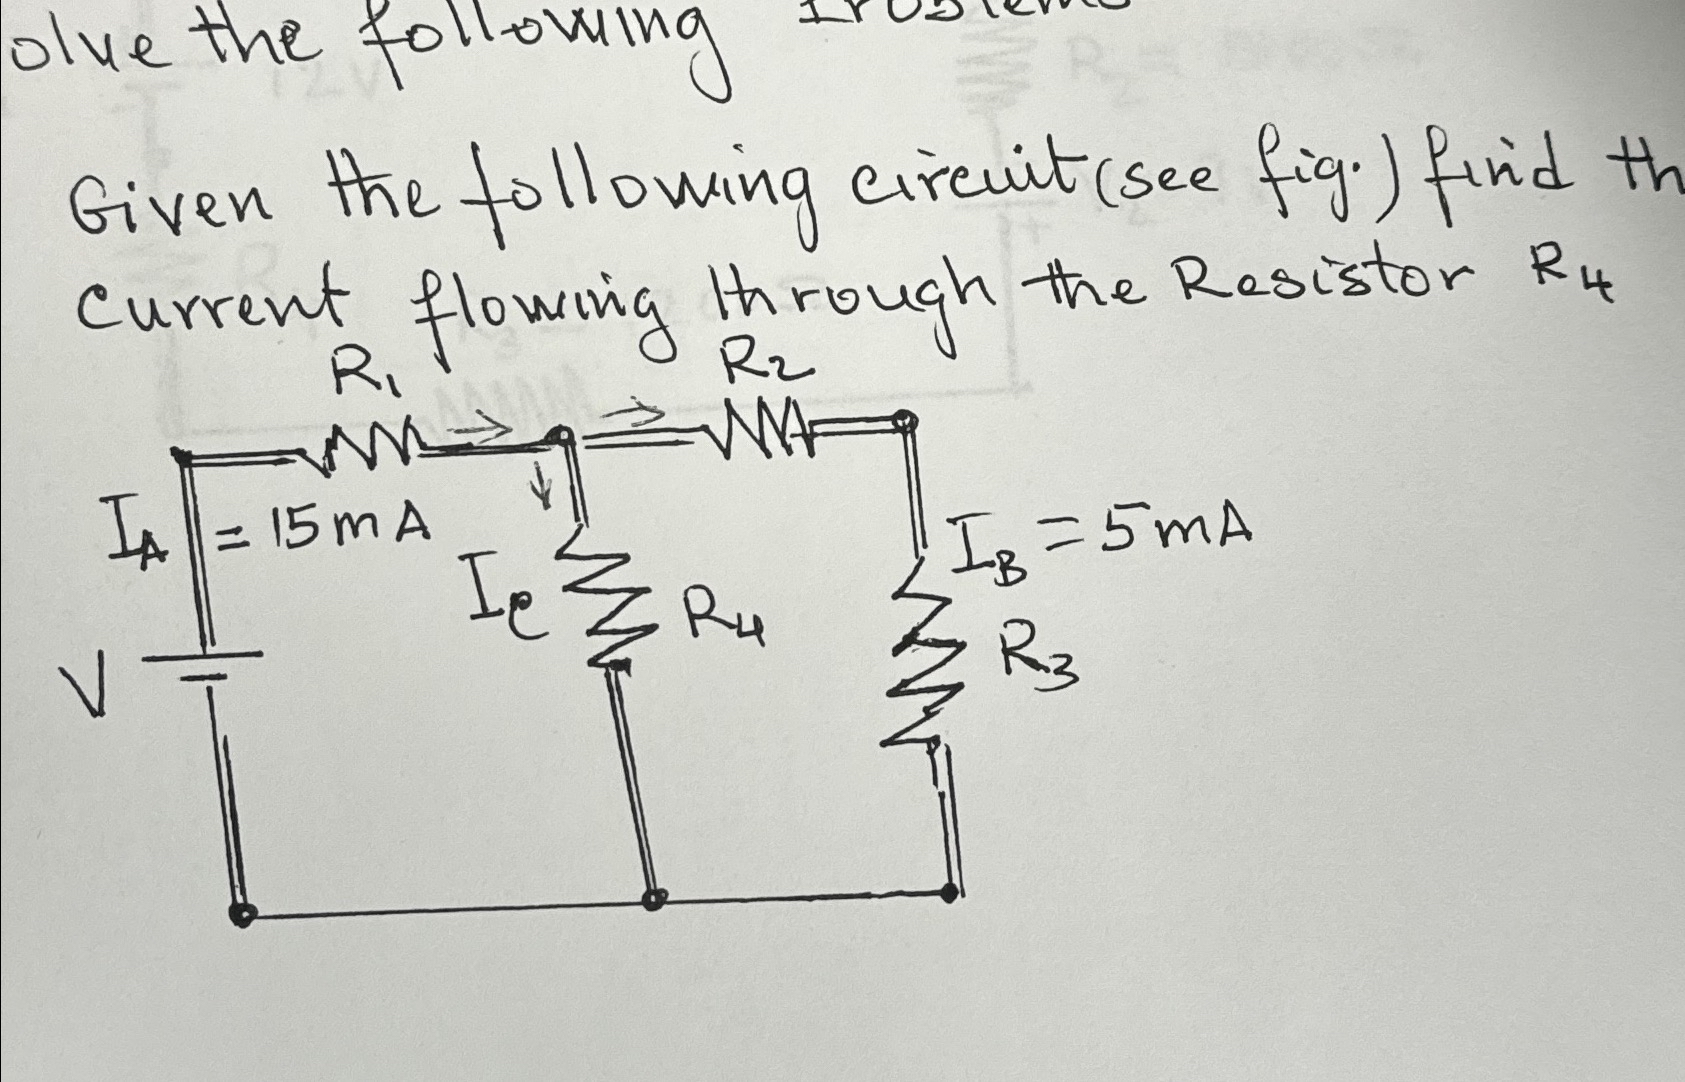 olve the following
Given the following circuit (see fig.) find th
Current flowing through the Resistor R4
R1
R2
IA = 15 mA
IB = 5 mA
IC
R4
R3
V
12V